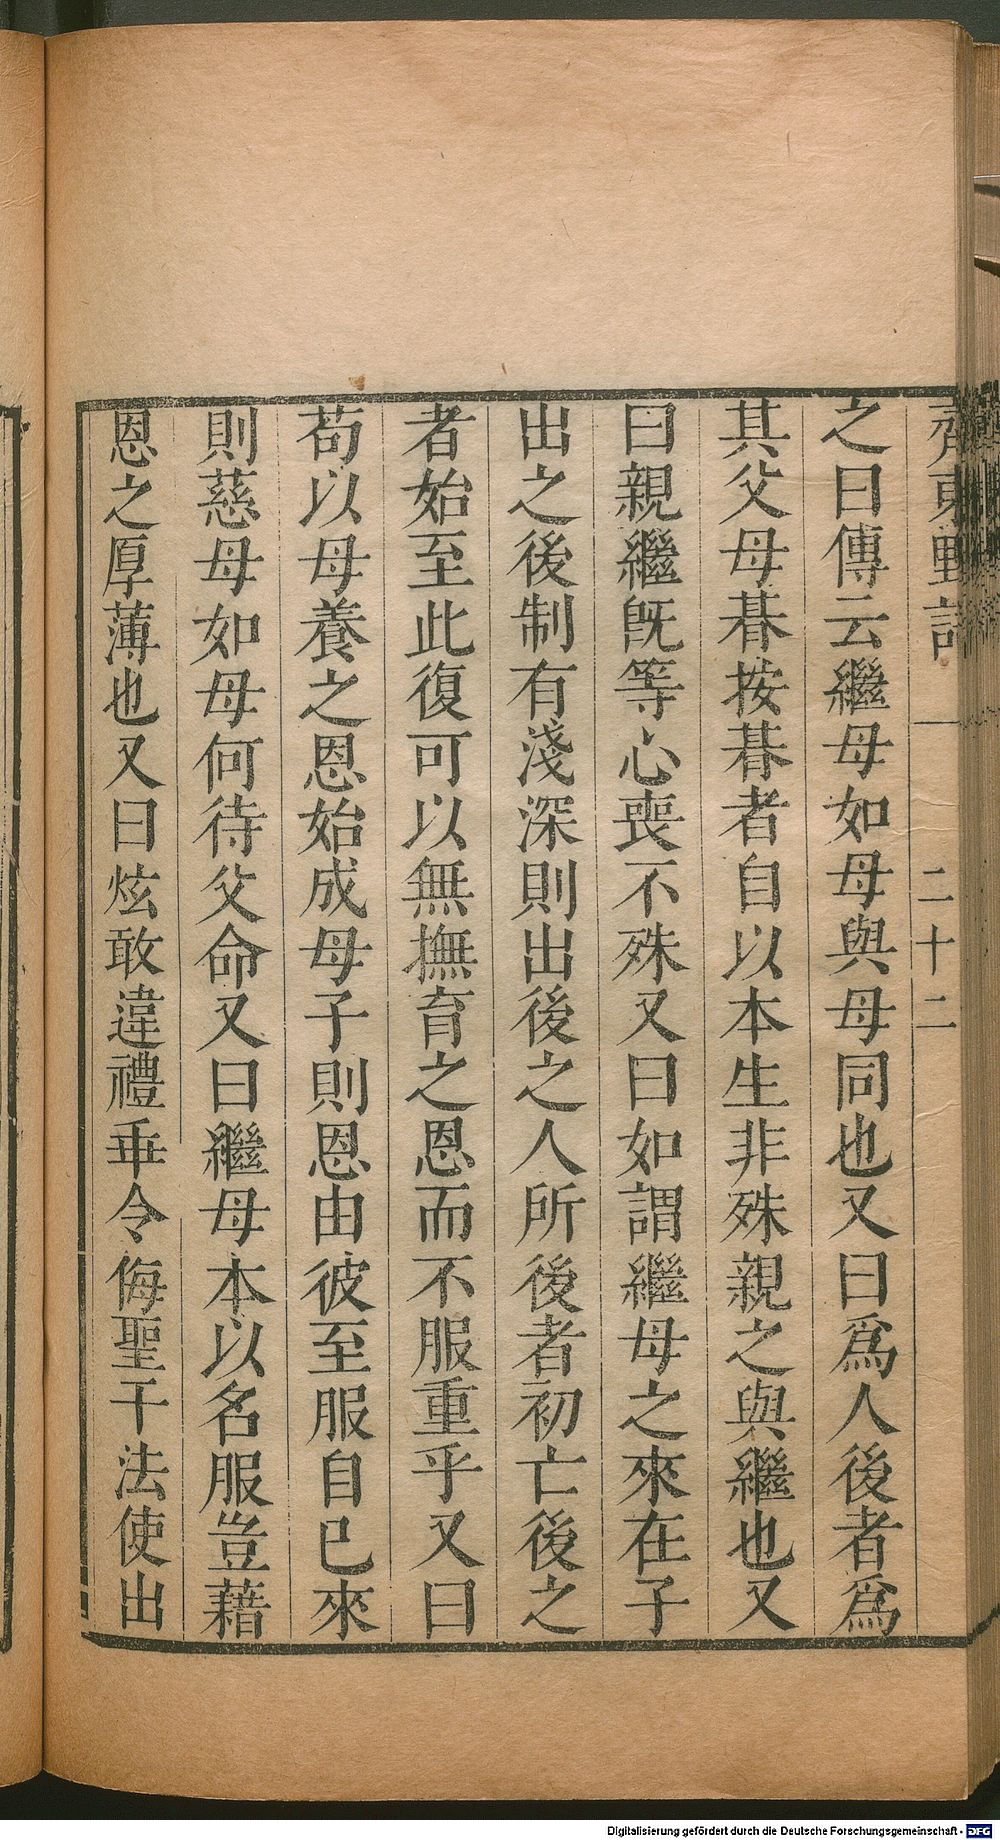 齊東野語
二十二
之曰傳云繼母如母與母同也又曰爲人後者爲
其父母朞按朞者自以本生非殊親之與繼也又
曰親繼旣等心喪不殊又曰如謂繼母之來在子
出之後制有淺深則出後之人所後者初亡後之
者始至此復可以無撫育之恩而不服重乎又曰
苟以母養之恩始成母子則恩由彼至服自已來
則慈母如母何待父命又曰繼母本以名服豈藉
恩之厚薄也又曰炫敢違禮乖令侮聖干法使出
Digitalisierung gefördert durch die Deutsche Forschungsgemeinschaft - DFG